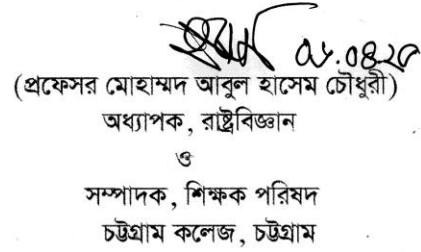 (প্রফেসর মোহাম্মদ আবুল হাসেম চৌধুরী)
অধ্যাপক, রাষ্ট্রবিজ্ঞান
ও
সম্পাদক, শিক্ষক পরিষদ
চট্টগ্রাম কলেজ, চট্টগ্রাম